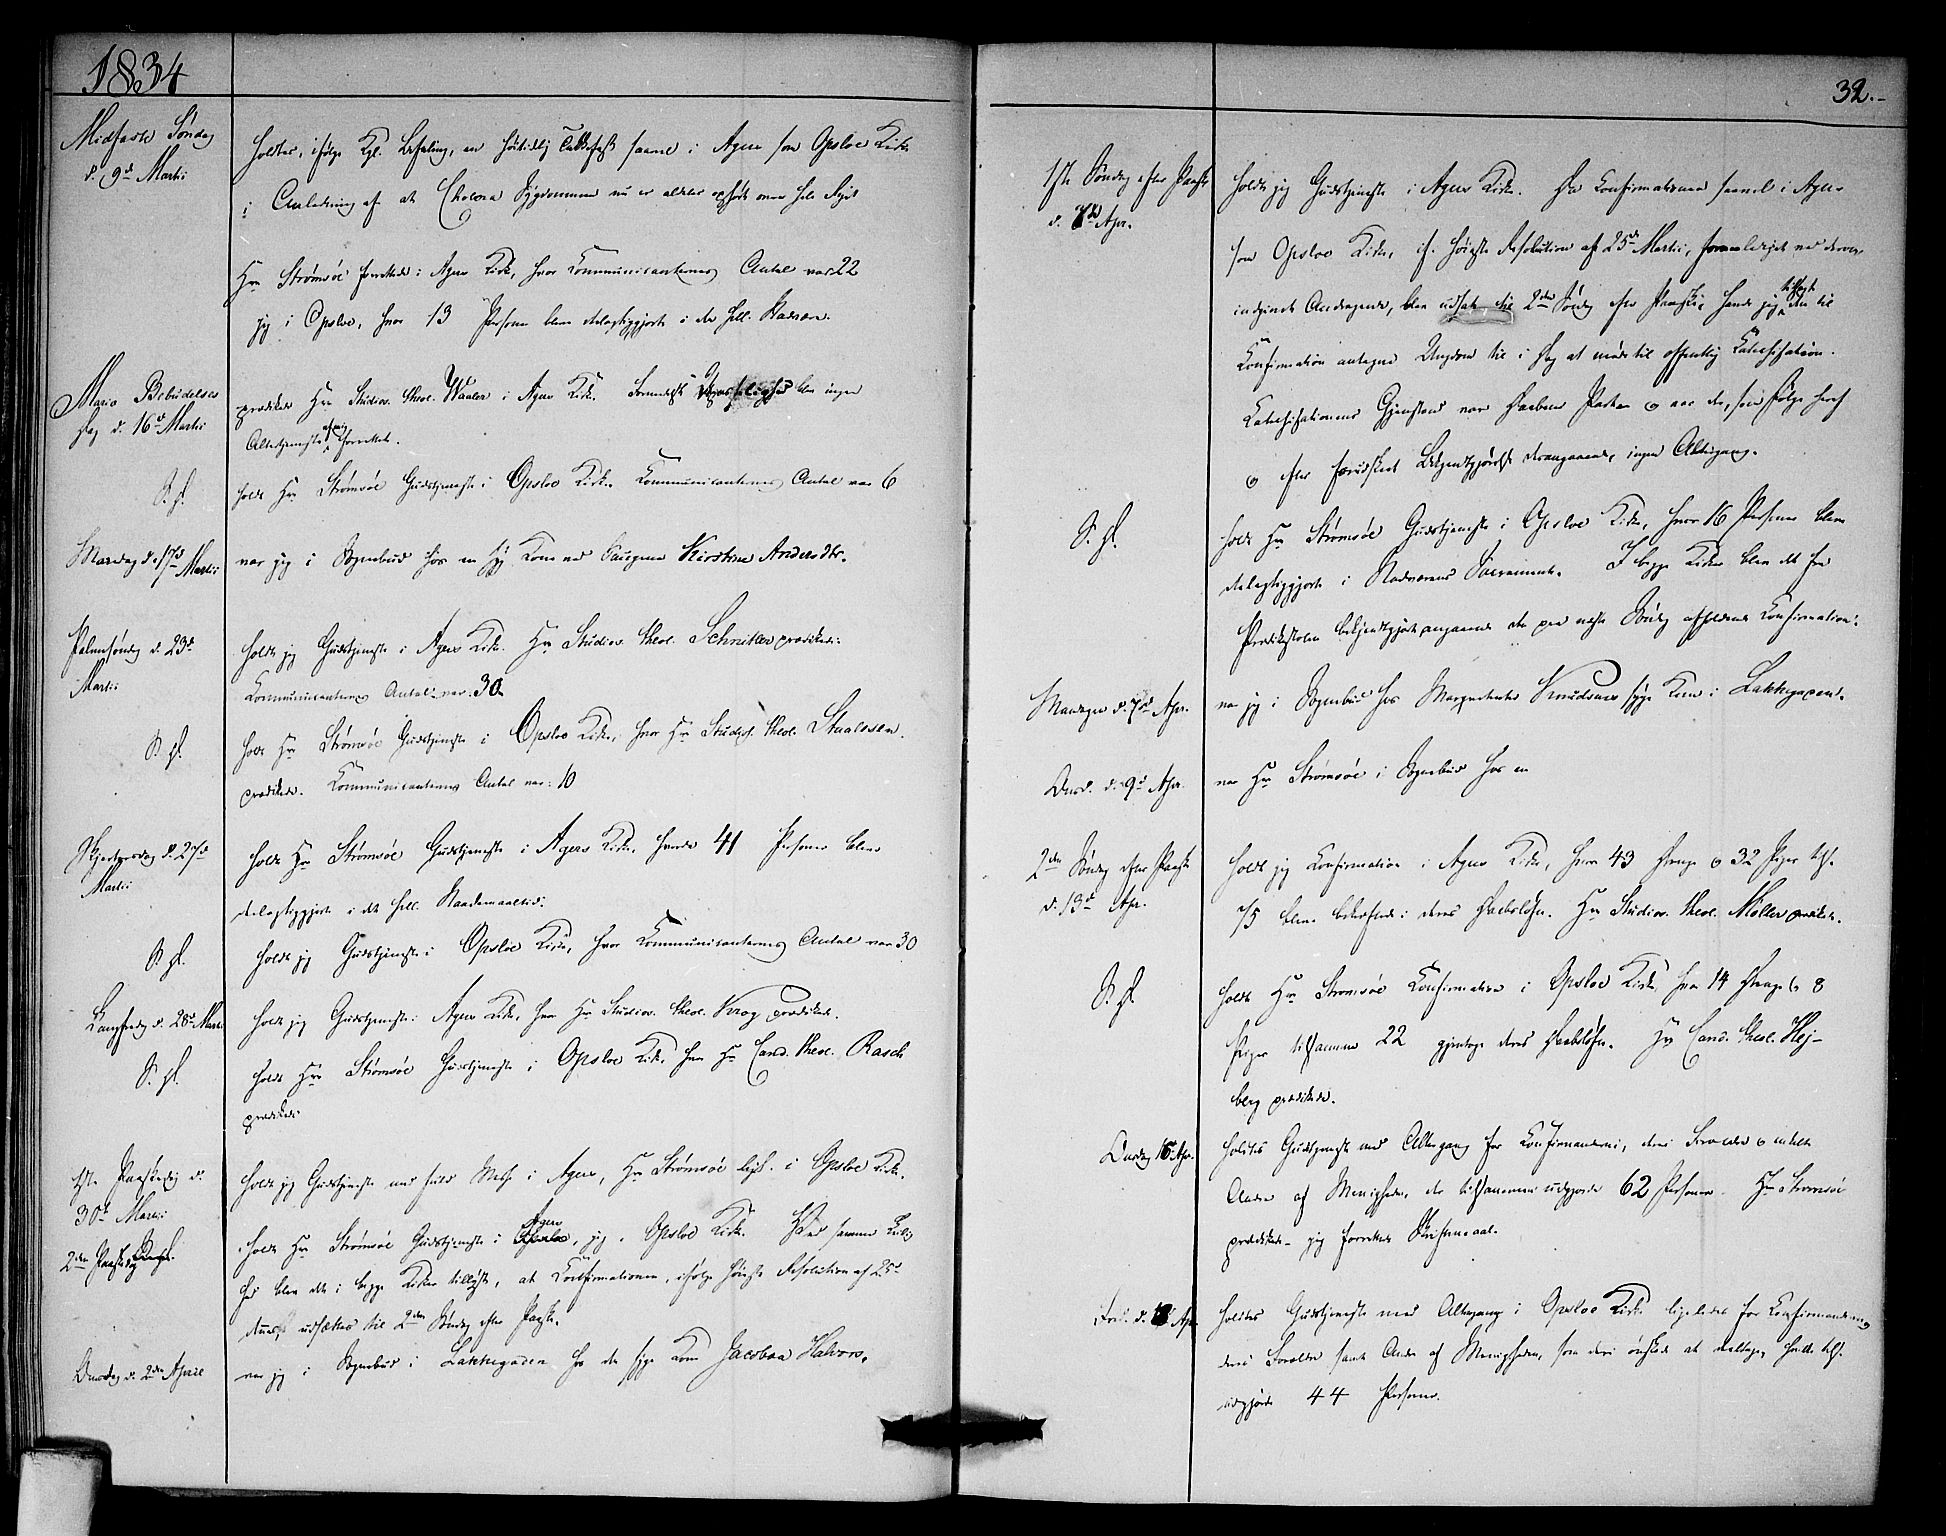 1834
Midfaste Søndag
d. 9de Martii
holdtes, ifølge Kgl. Befaling, en høitidelig Takkefest saavel i Agers som Opsloe Kirke
i Anledning af at Cholera Sygdommen nu er aldeles ophørt over hele Riget
Hr Strømsøe forrettede i Agers Kirke, hvor Communicanternes Antal var 22
jeg i Opsloe, hvor 13 Personer bleve delagtiggjorte i den hell. Nadvere.
Maria Bebudelses
Dag d. 16de Martii
prædikede Hr Studios. theol. Waaler i Agers Kirke. Formedelst blev ingen
Altertjeneste af mig forrettet.
S. D.
holdt Hr Strømsøe Gudstjeneste i Opsloe Kirke. Communicanternes Antal var 6
Mandag d. 17de Martii
var jeg i Sognebud hos en syg Kone ved Navn Kirstine Andersdtr.
Palmesøndag d. 23de
Martii
holdt jeg Gudstjeneste i Agers Kirke. Hr Studios. theol. Schnitler prædikede.
Communicanternes Antal var: 30
S. D.
holdt Hr Strømsøe Gudstjeneste i Opsloe Kirke, hvor Hr Studios. theol. Staalesen
prædikede. Communicanternes Antal var: 10
Skjertorsdag d. 27de
Martii
holdt Hr Strømsøe Gudstjeneste i Agers Kirke, hvorved 41 Personer bleve
delagtiggjorte i det hell. Naademaaltid.
S. D.
holdt jeg Gudstjeneste i Opsloe Kirke, hvor Communicanternes Antal var 30
Langfredag d. 28de Martii
holdt jeg Gudstjeneste i Agers Kirke, hvor Hr Studios. theol. Krog prædikede.
S. D.
holdt Hr Strømsøe Gudstjeneste i Opsloe Kirke hvor Hr Cand. theol. Rasch
prædikede
1ste Paaskedag d.
30te Martii
holdt jeg Gudstjeneste med fuld Messe i Agers, Hr Strømsøe ligel. i Opsloe Kirke.
2den Paaskedag
holdt Hr Strømsøe Gudstjeneste i Agers, jeg i Opsloe Kirke. Ved samme Leilig
hed blev det i begge Kirker tillyst, at Confirmationen, ifølge høieste Resolution af 25de
udsættes til 2den Søndag efter Paaske.
Onsdag d. 2den Aprile
var jeg i Sognebud i Lakkegaden hos den syge Kone Jacobea Halvors.
32.
1ste Søndag efter Paaske
d. Apr.
holdt jeg Gudstjeneste i Agers Kirke. Da Confirmationen saavel i Agers
som Opsloe Kirke, if. høieste Resolution af 25de Martii, foranlediget ved derom
indgivet Andragende, blev udsat til 2den Sønd. efter Paaske, havde jeg tilsagt den til
Confirmation antagne Ungdom til i Dag at møde til offentlig Catechisation.
Catechisationens Gjenstand var Daabens Pagten og var der, som Følge heraf
og efter forudskeet Bekjendtgjørelse derangaaende, ingen Altergang.
S. D.
holdt Hr Strømsøe Gudstjeneste i Opsloe Kirke, hvor 16 Personer bleve
delagtiggjorte i Nadverens Sacramente. I begge Kirker blev det fra
Prædikestolen bekjendtgjort angaaende den paa næste Søndag afholdende Confirmation.
Mandagen d. 7de Apr.
var jeg i Sognebud hos Margrethe Knudsens syge Kone i Lakkegaden.
Onsd. d. 9de Apr.
var Hr Strømsøe i Sognebud hos en
2den Søndag efter Paaske
d. 13de Apr.
holdt jeg Confirmation i Agers Kirke, hvor 43 Drenge og 32 Piger tils.
75 bleve bekræftede i deres Daabsløfte. Hr Studios. theol. Møller prædikede.
S. D.
holdt Hr Strømsøe Confirmation i Opsloe Kirke, hvor 14 Drenge og 8
Piger tilsammen 22 gjentoge deres Daabsløfte. Hr Cand. theol. Hej-
berg prædikede.
Onsdag 16de Apr.
holdtes Gudstjeneste med Altergang for Confirmanderne, deres Forældre og enkelte
Andre af Menigheden, der tilsammen udgjorde 62 Personer. Hr Strømsøe
prædikede - jeg forrettede Skriftemaal.
Fred. d. 18 Apr.
holdtes Gudstjeneste med Altergang i Opsloe Kirke ligeledes for Confirmanderne,
deres Forældre samt Andre af Menigheden, som deri ønskede at deltage, hvilke tils.
udgjorde 44 Personer.